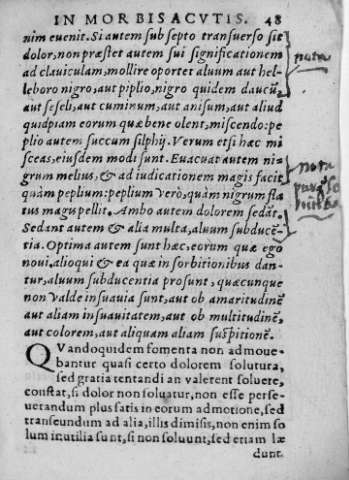 IN MORBIS ACVTIS. 48
nim euenit. Si autem sub septo transuerso sit
dolor, non præstet autem sui significationem
ad clauiculam, mollire oportet aluum aut hel-
leboro nigro, aut piplio, nigro quidem daucũ,
aut seseli, aut cuminum, aut anisum, aut aliud
quidpiam eorum quæ bene olent, miscendo: pe
plio autem succum silphij. Verum etsi hæc mi
sceas, eiusdem modi sunt. Euacuat autem nis
grum melius, & ad iudicationem magis facit
quàm peplium: peplium verò, quàm nigrum fla
tus magis pellit. Ambo autem dolorem sedãt.
Sedant autem & alia multa, aluum subducẽ-
tia. Optima autem sunt hæc, eorum quæ ego
noui. alioqui & ea quæ in sorbitionibus dan-
tur, aluum subducentia prosunt, quæcunque
non valde insuauia sunt, aut ob amaritudinẽ
aut aliam insuauitatem, aut ob multitudinẽ,
aut colorem, aut aliquam aliam suspitionẽ.
QVandoquidem fomenta non admoue-
bantur quasi certo dolorem solutura,
sed gratia tentandi an valerent soluere,
constat, si dolor non soluatur, non esse perse-
uerandum plus satis in eorum admotione, sed
transeundum ad alia, illis dimissis, non enim so
lum inutilia sunt, si non soluunt, sed etiam læ
dunt.
nota
nota